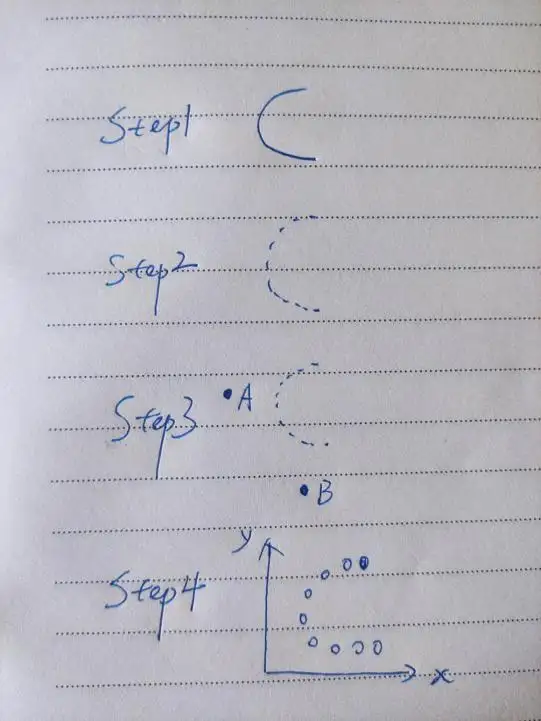 Step1
Step2
A
Step3
B
y
Step4
x